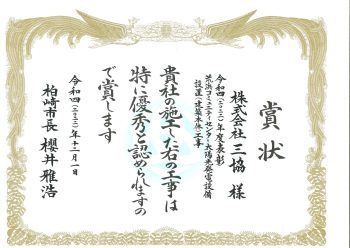 賞状
株式会社三協 様
令和四(二〇二二)年度表彰
荒浜コミュニティセンター太陽光発電設備
設置(建築本体)工事
貴社の施工した右の工事は
特に優秀と認められますの
で賞します
令和四(二〇二二)年十二月一日
柏崎市長 櫻井雅浩